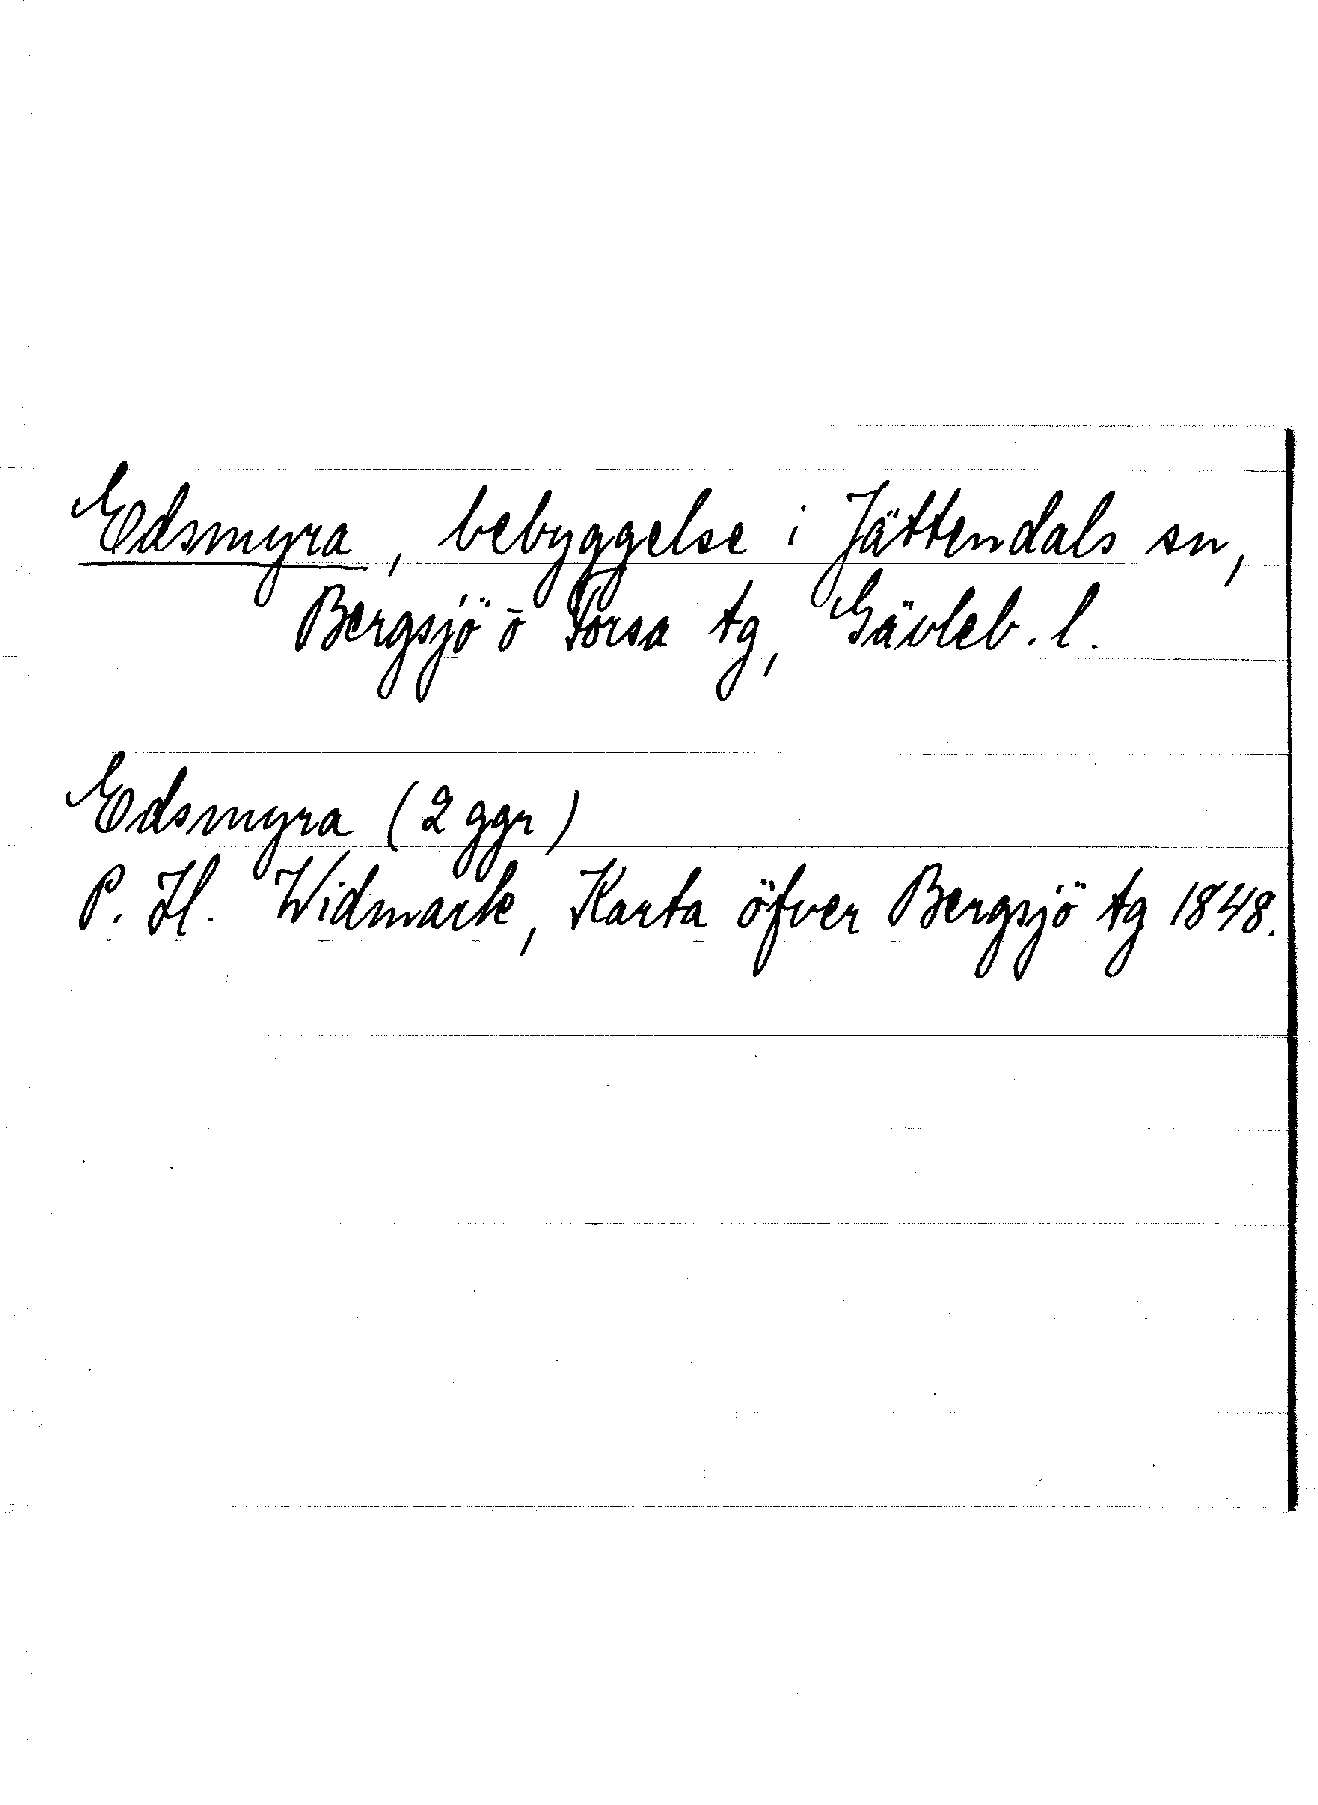 Edsmyra, bebyggelse i Jättendals sn,
Bergsjö o Forsa tg, Gävleb. l.
Edsmyra (2 ggr)
P. H. Widmark, Karta öfver Bergsjö tg 1848.